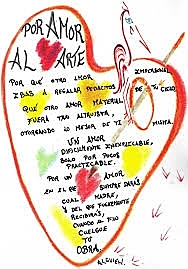 POR AMOR
AL ARTE
POR QUÉ OTRO AMOR IMPERSONAL
IBAS A REGALAR PEDACITOS DE TU CIELO,
QUÉ OTRO AMOR MATERIAL
FUERA TAN ALTRUISTA,
OTORGANDO LO MEJOR DE TI MISMA.
UN AMOR
DIFICILMENTE INEXPLICABLE,
SOLO POR POCOS
PRACTICABLE.
POR UN AMOR
EN EL QUE SIEMPRE DARÁS
CUAL MADRE,
Y DEL QUE FELIZMENTE
RECIBIRAS,
CUANDO AL FIJO
CUELGUE
TU
OBRA.